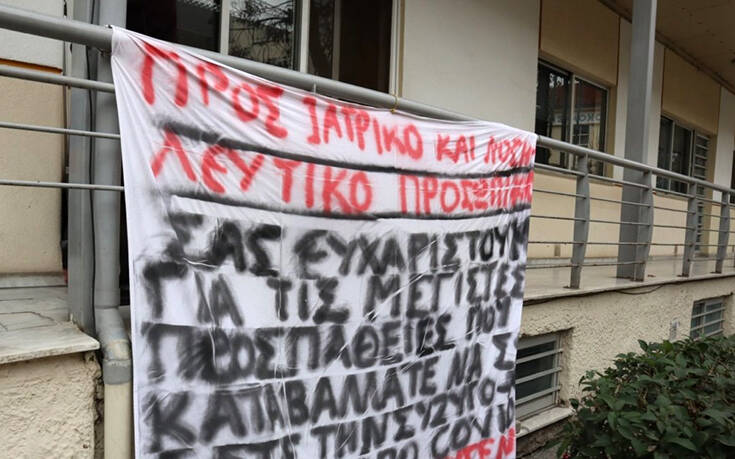 ΠΡΟΣ ΙΑΤΡΙΚΟ ΚΑΙ ΝΟΣΗ
ΛΕΥΤΙΚΟ ΠΡΟΣΩΠΙΚΟ
ΣΑΣ ΕΥΧΑΡΙΣΤΟΥΜ
ΓΙΑ ΤΙΣ ΜΕΓΙΣΤΕΣ
ΠΡΟΣΠΑΘΕΙΕΣ ΠΟΥ
ΚΑΤΑΒΑΜΑΤΕ ΝΑ Σ
ΤΗΝ ΣΥΖΥΓΟ
COV